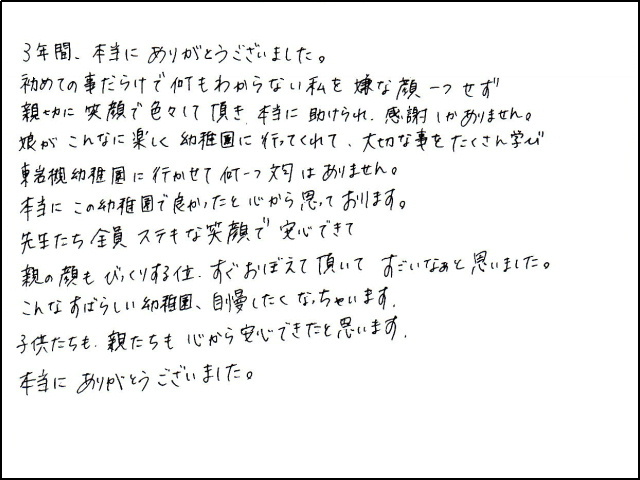 3年間、本当に ありがとうございました。
初めての事だらけで何もわからない私を 嫌な顔一つせず
親切に 笑顔で色々して頂き、本当に 助けられ、感謝しかありません。
娘が こんなに楽しく 幼稚園に行ってくれて、大切な事をたくさん学び
東岩槻幼稚園に行かせて何一つ文句はありません。
本当に この幼稚園で良かったと心から思っております。
先生たち 全員 ステキな笑顔で 安心できて
親の顔も びっくりする位、すぐおぼえて頂いて すごいなぁと思いました。
こんな すばらしい幼稚園、自慢したくなっちゃいます。
子供たちも、親たちも 心から安心できたと思います。
本当に ありがとうございました。